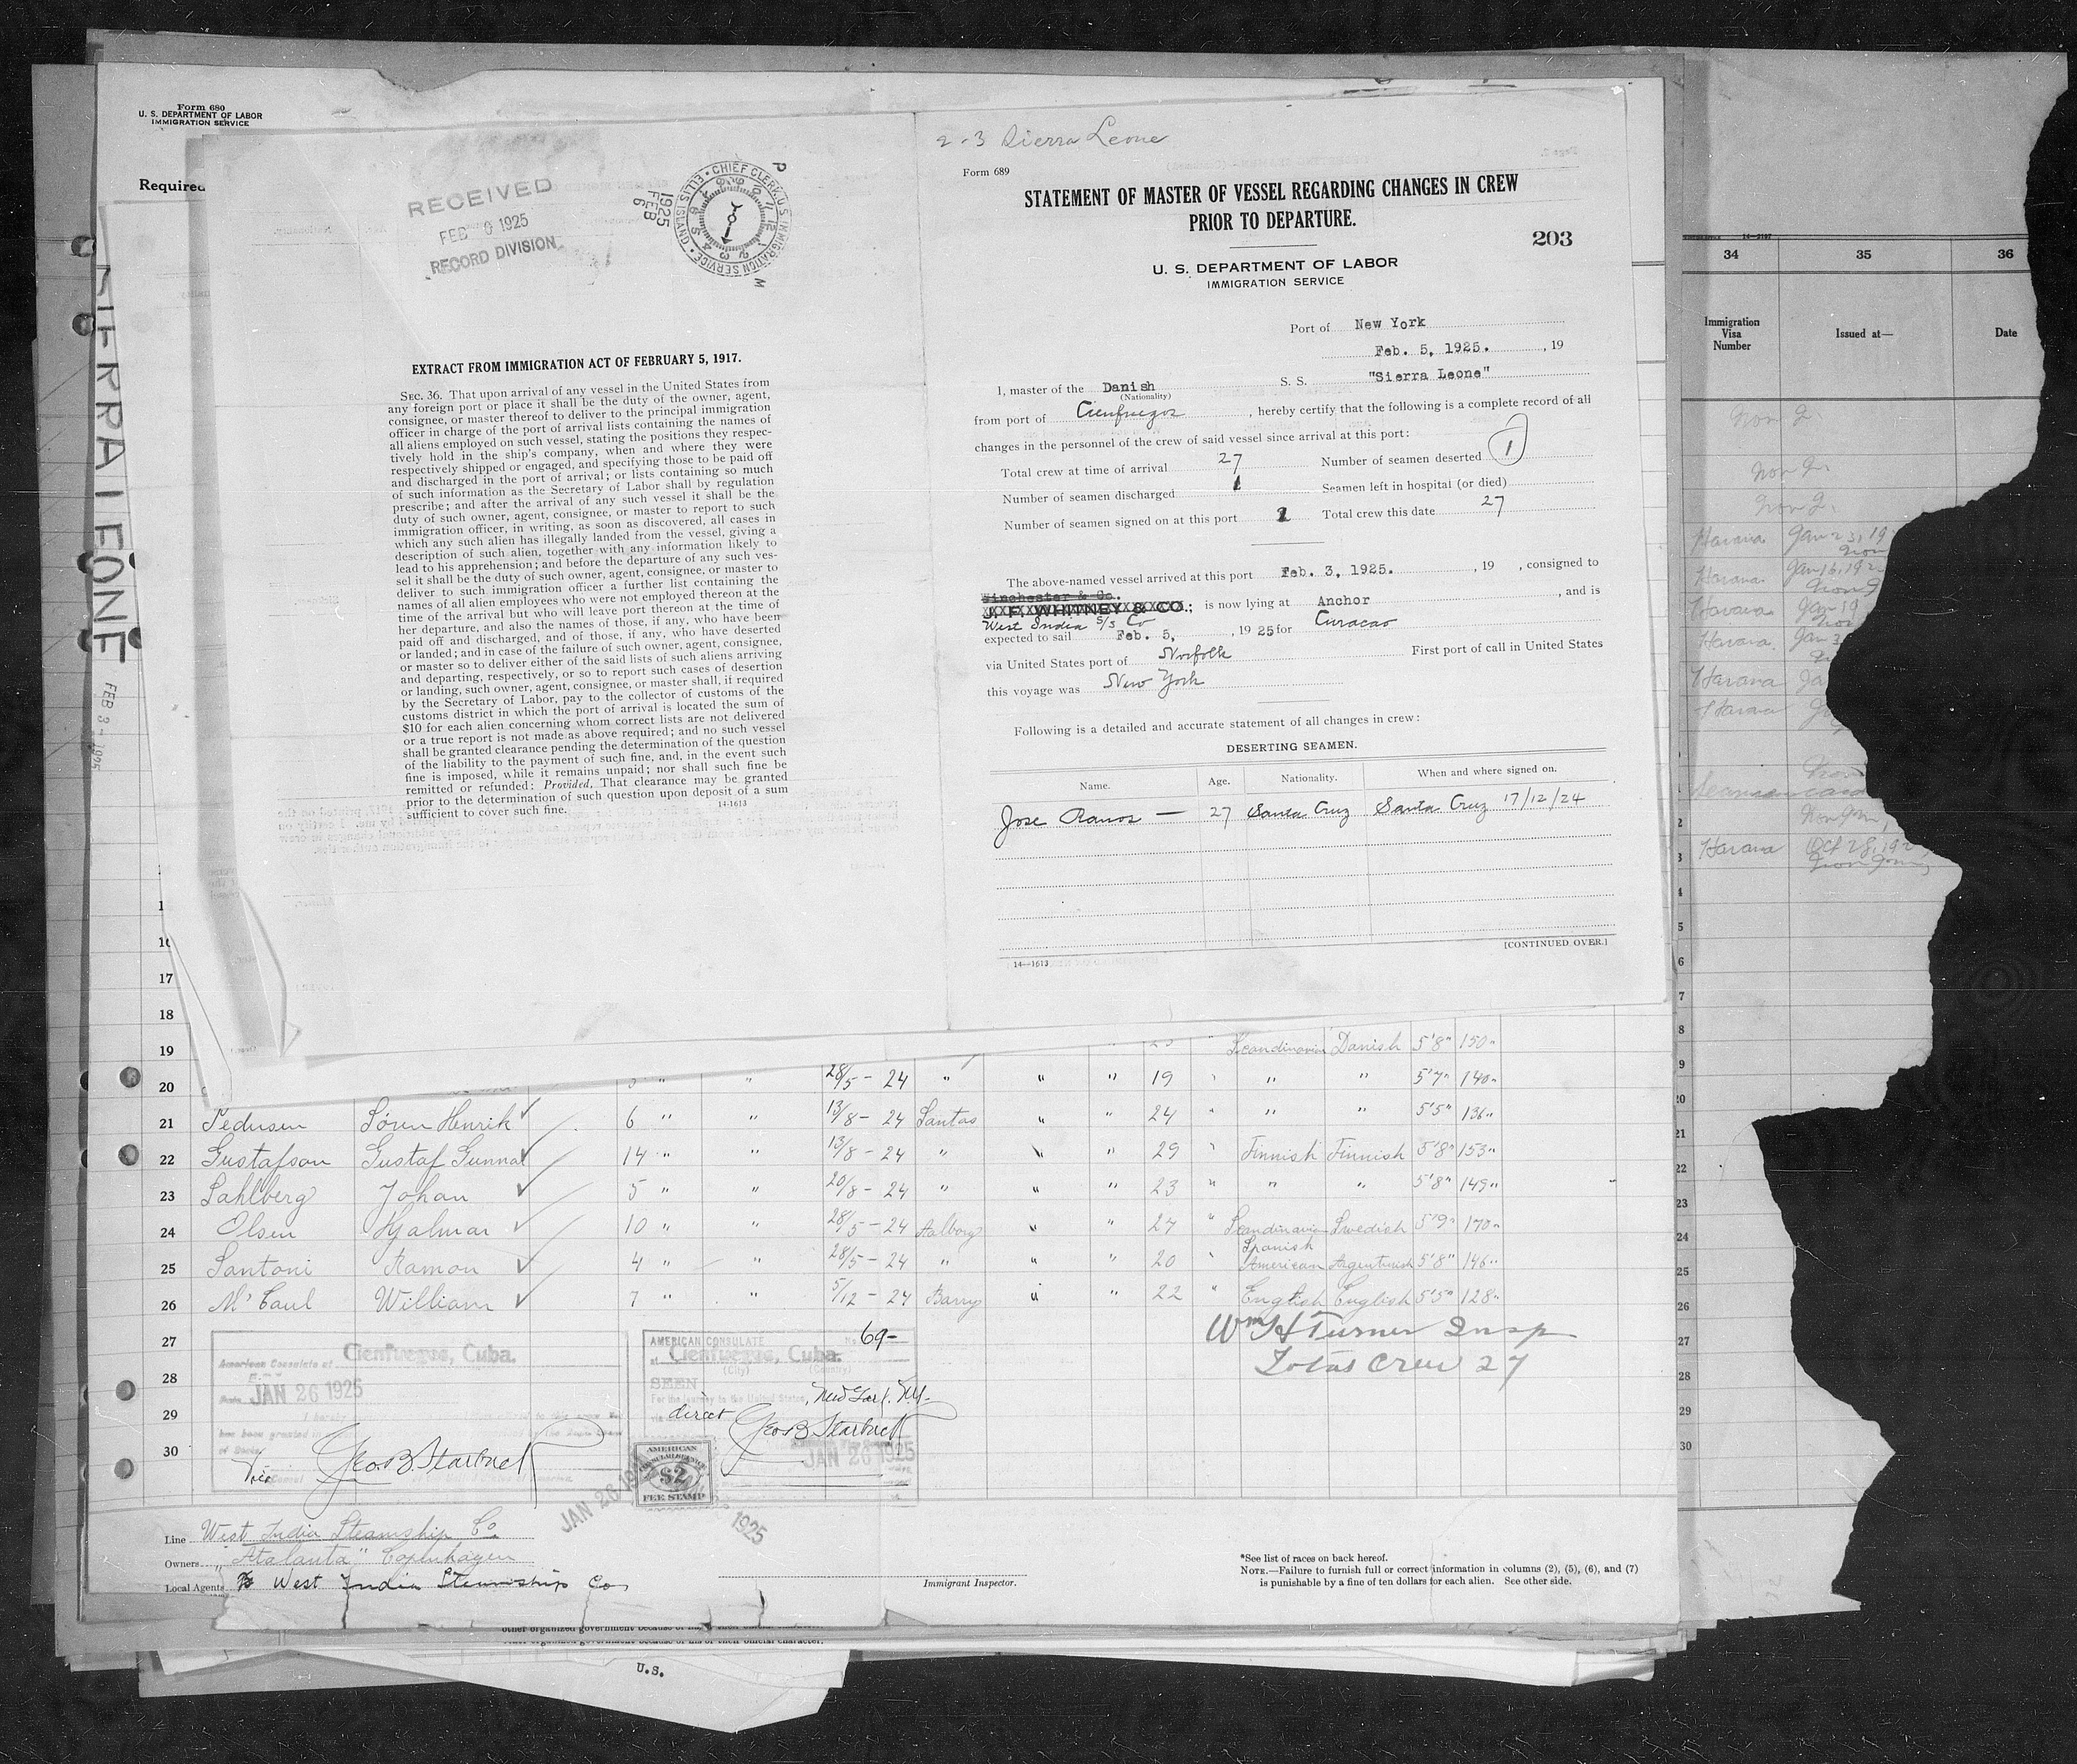 Form 680
U. S. DEPARTMENT OF LABOR
IMMIGRATION SERVICE
Required
SIERRA LEONE
FEB 3 - 1925
RECEIVED
FEB 6 1925
RECORD DIVISION
1925
FEB
6
P
M
CHIEF CLERK U.S. IMMIGRATION SERVICE ELLIS ISLAND
EXTRACT FROM IMMIGRATION ACT OF FEBRUARY 5, 1917.
SEC. 36. That upon arrival of any vessel in the United States from
any foreign port or place it shall be the duty of the owner, agent,
consignee, or master thereof to deliver to the principal immigration
officer in charge of the port of arrival lists containing the names of
all aliens employed on such vessel, stating the positions they respec-
tively hold in the ship's company, when and where they were
respectively shipped or engaged, and specifying those to be paid off
and discharged in the port of arrival; or lists containing so much
of such information as the Secretary of Labor shall by regulation
prescribe; and after the arrival of any such vessel it shall be the
duty of such owner, agent, consignee, or master to report to such
immigration officer, in writing, as soon as discovered, all cases in
which any such alien has illegally landed from the vessel, giving a
description of such alien, together with any information likely to
lead to his apprehension; and before the departure of any such ves-
sel it shall be the duty of such owner, agent, consignee, or master to
deliver to such immigration officer a further list containing the
names of all alien employees who were not employed thereon at the
time of the arrival but who will leave port thereon at the time of
her departure, and also the names of those, if any, who have been
paid off and discharged, and of those, if any, who have deserted
or landed; and in case of the failure of such owner, agent, consignee,
or master so to deliver either of the said lists of such aliens arriving
and departing, respectively, or so to report such cases of desertion
or landing, such owner, agent, consignee, or master shall, if required
by the Secretary of Labor, pay to the collector of customs of the
customs district in which the port of arrival is located the sum of
$10 for each alien concerning whom correct lists are not delivered
or a true report is not made as above required; and no such vessel
shall be granted clearance pending the determination of the question
of the liability to the payment of such fine, and, in the event such
fine is imposed, while it remains unpaid; nor shall such fine be
remitted or refunded: Provided, That clearance may be granted
prior to the determination of such question upon deposit of a sum
sufficient to cover such fine.
14-1613
2-3 Sierra Leone
Form 689
STATEMENT OF MASTER OF VESSEL REGARDING CHANGES IN CREW
PRIOR TO DEPARTURE.
203
U. S. DEPARTMENT OF LABOR
IMMIGRATION SERVICE
Port of New York
Feb. 5, 1925. , 19
I, master of the Danish S. S. "Sierra Leone"
(Nationality)
from port of Cienfuegos , hereby certify that the following is a complete record of all
changes in the personnel of the crew of said vessel since arrival at this port:
Total crew at time of arrival 27 Number of seamen deserted 1
Number of seamen discharged 1 Seamen left in hospital (or died)
Number of seamen signed on at this port 2 Total crew this date 27
The above-named vessel arrived at this port Feb. 3, 1925. , 19 , consigned to
Winchester & Co.
J. F. WHITNEY & CO.; is now lying at Anchor , and is
West India S/S Co
expected to sail Feb. 5, , 1925 for Curacao
via United States port of Norfolk First port of call in United States
this voyage was New York
Following is a detailed and accurate statement of all changes in crew:
DESERTING SEAMEN.
Name. Age. Nationality. When and where signed on.
Jose Ramos — 27 Santa Cruz Santa Cruz 17/12/24
[CONTINUED OVER.]
14—1613
34 35 36
Immigration Visa Number Issued at— Date
Havana Jan 23, 19
Havana Jan 16, 192
Havana Jan 19
Havana Jan 3
Havana Ja
Havana
Havana Oct 28, 192
17
18
19 Scandinavian Danish 5'8" 150"
20 28/5 - 24 " " " 19 " " " 5'7" 140"
21 Pedersen Søren Henrik 6 " " 13/8 - 24 Santos " " 24 " " " 5'5" 136"
22 Gustafson Gustaf Gunnar 14 " " 13/8 - 24 " " " 29 " Finnish Finnish 5'8" 153"
23 Sahlberg Johan 5 " " 20/8 - 24 " " " 23 " " " 5'8" 149"
24 Olsen Hjalmar 10 " " 28/5 - 24 Aalborg " " 27 " Scandinavian Swedish 5'9" 170"
25 Santoni Ramon 4 " " 28/5 - 24 " " " 20 " Spanish American Argentinish 5'8" 146"
26 McCaul William 7 " " 5/12 - 24 Barry " " 22 " English English 5'5" 128"
27 Wm H Turner Insp
28 Total Crew 27
29
30
American Consulate at Cienfuegos, Cuba.
Date JAN 26 1925
Vice Geo. B. Starbuck
AMERICAN CONSULATE No. 69-
at Cienfuegos, Cuba.
(City) (Country)
SEEN
For the journey to the United States, New York, N.Y.
via direct
Geo B Starbuck
JAN 26 1925
AMERICAN
CONSULAR SERVICE
$2
FEE STAMP
JAN 26 1925
1925
Line West India Steamship Co
Owners "Atalanta" Copenhagen
Local Agents West India Steamship Co
Immigrant Inspector.
*See list of races on back hereof.
NOTE.—Failure to furnish full or correct information in columns (2), (5), (6), and (7)
is punishable by a fine of ten dollars for each alien. See other side.
U.S.